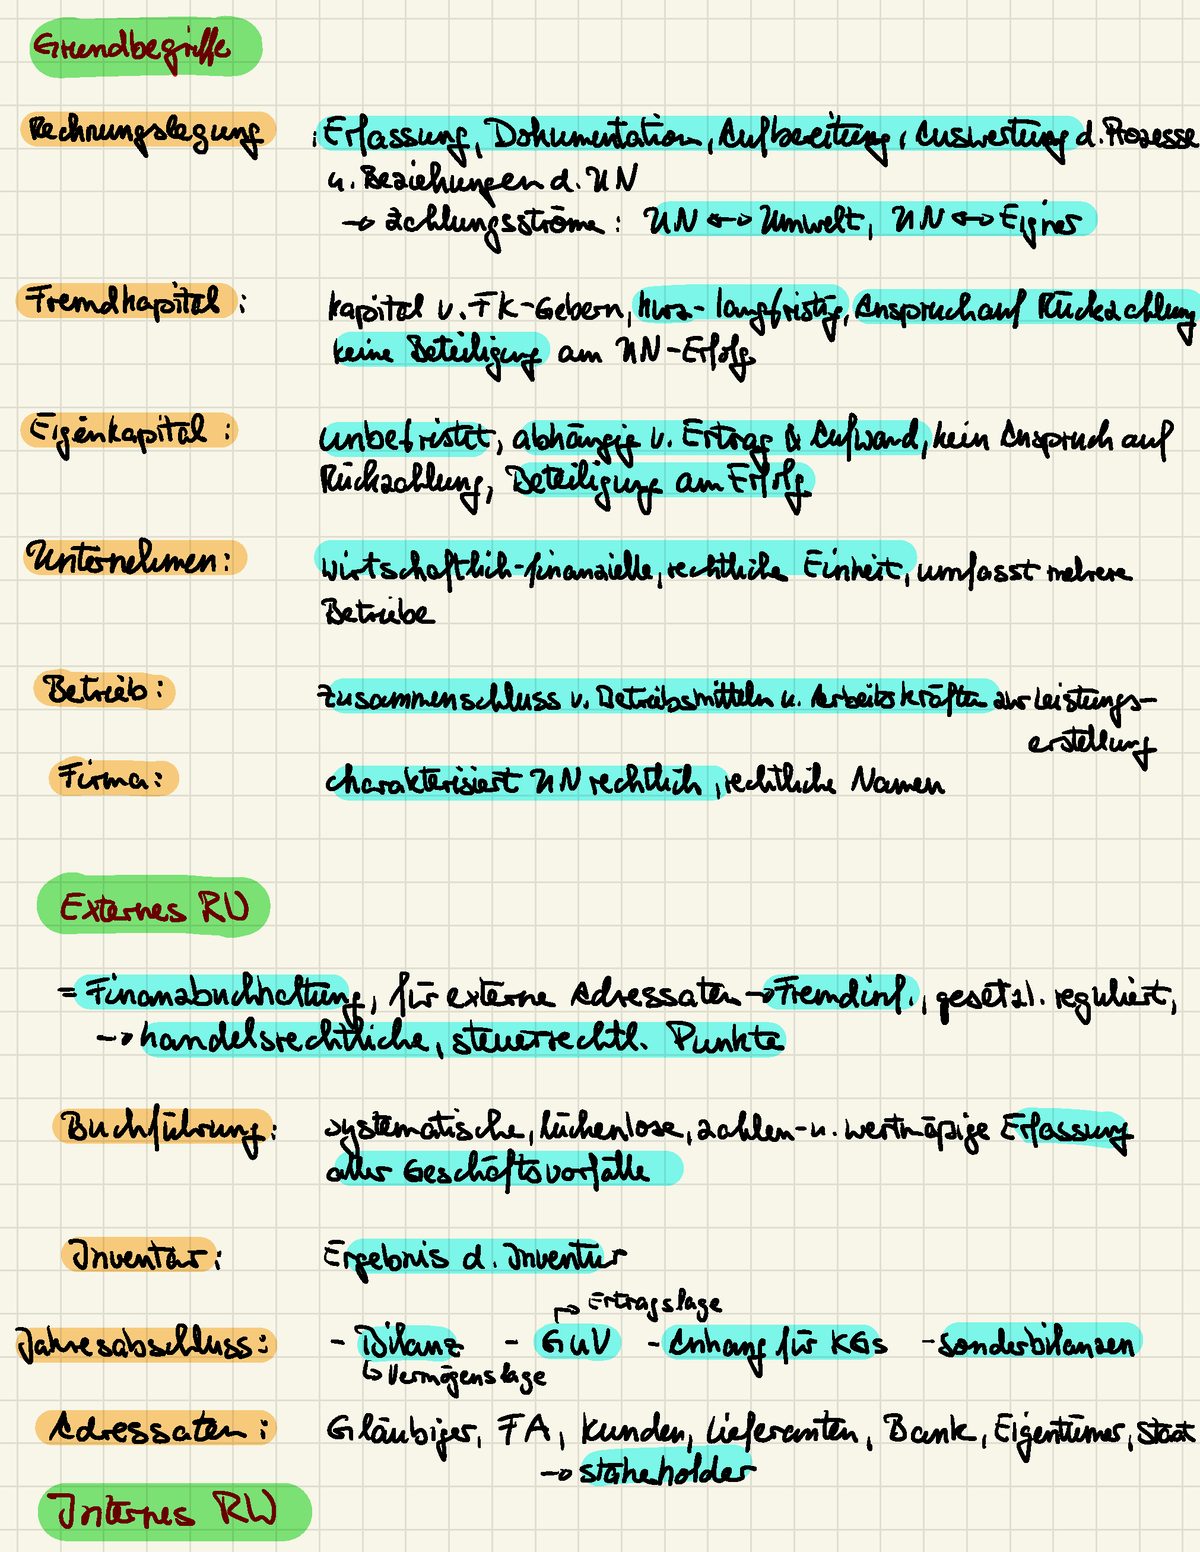 Grundbegriffe
Rechnungslegung : Erfassung, Dokumentation, Aufbereitung, Auswertung d. Prozesse
u. Beziehungen d. UN
→ Zahlungsströme: UN ↔ Umwelt, UN ↔ Eigner
Fremdkapital: Kapital v. FK-Gebern, kurz- langfristig, Anspruch auf Rückzahlung
keine Beteiligung am UN-Erfolg
Eigenkapital: unbefristet, abhängig v. Ertrag & Aufwand, kein Anspruch auf
Rückzahlung, Beteiligung am Erfolg
Unternehmen: wirtschaftlich-finanzielle, rechtliche Einheit, umfasst mehrere
Betriebe
Betrieb: Zusammenschluss v. Betriebsmitteln u. Arbeitskräften zur Leistungs-
erstellung
Firma: charakterisiert UN rechtlich, rechtliche Namen
Externes RW
= Finanzbuchhaltung, für externe Adressaten → Fremdinf., gesetzl. reguliert,
→ handelsrechtliche, steuerrechtl. Punkte
Buchführung: systematische, lückenlose, zahlen- u. wertmäßige Erfassung
aller Geschäftsvorfälle
Inventar: Ergebnis d. Inventur
↱ Ertragslage
Jahresabschluss: - Bilanz - GuV - Anhang für KGs - Sonderbilanzen
↳ Vermögenslage
Adressaten: Gläubiger, FA, Kunden, Lieferanten, Bank, Eigentümer, Staat
→ stakeholder
Internes RW